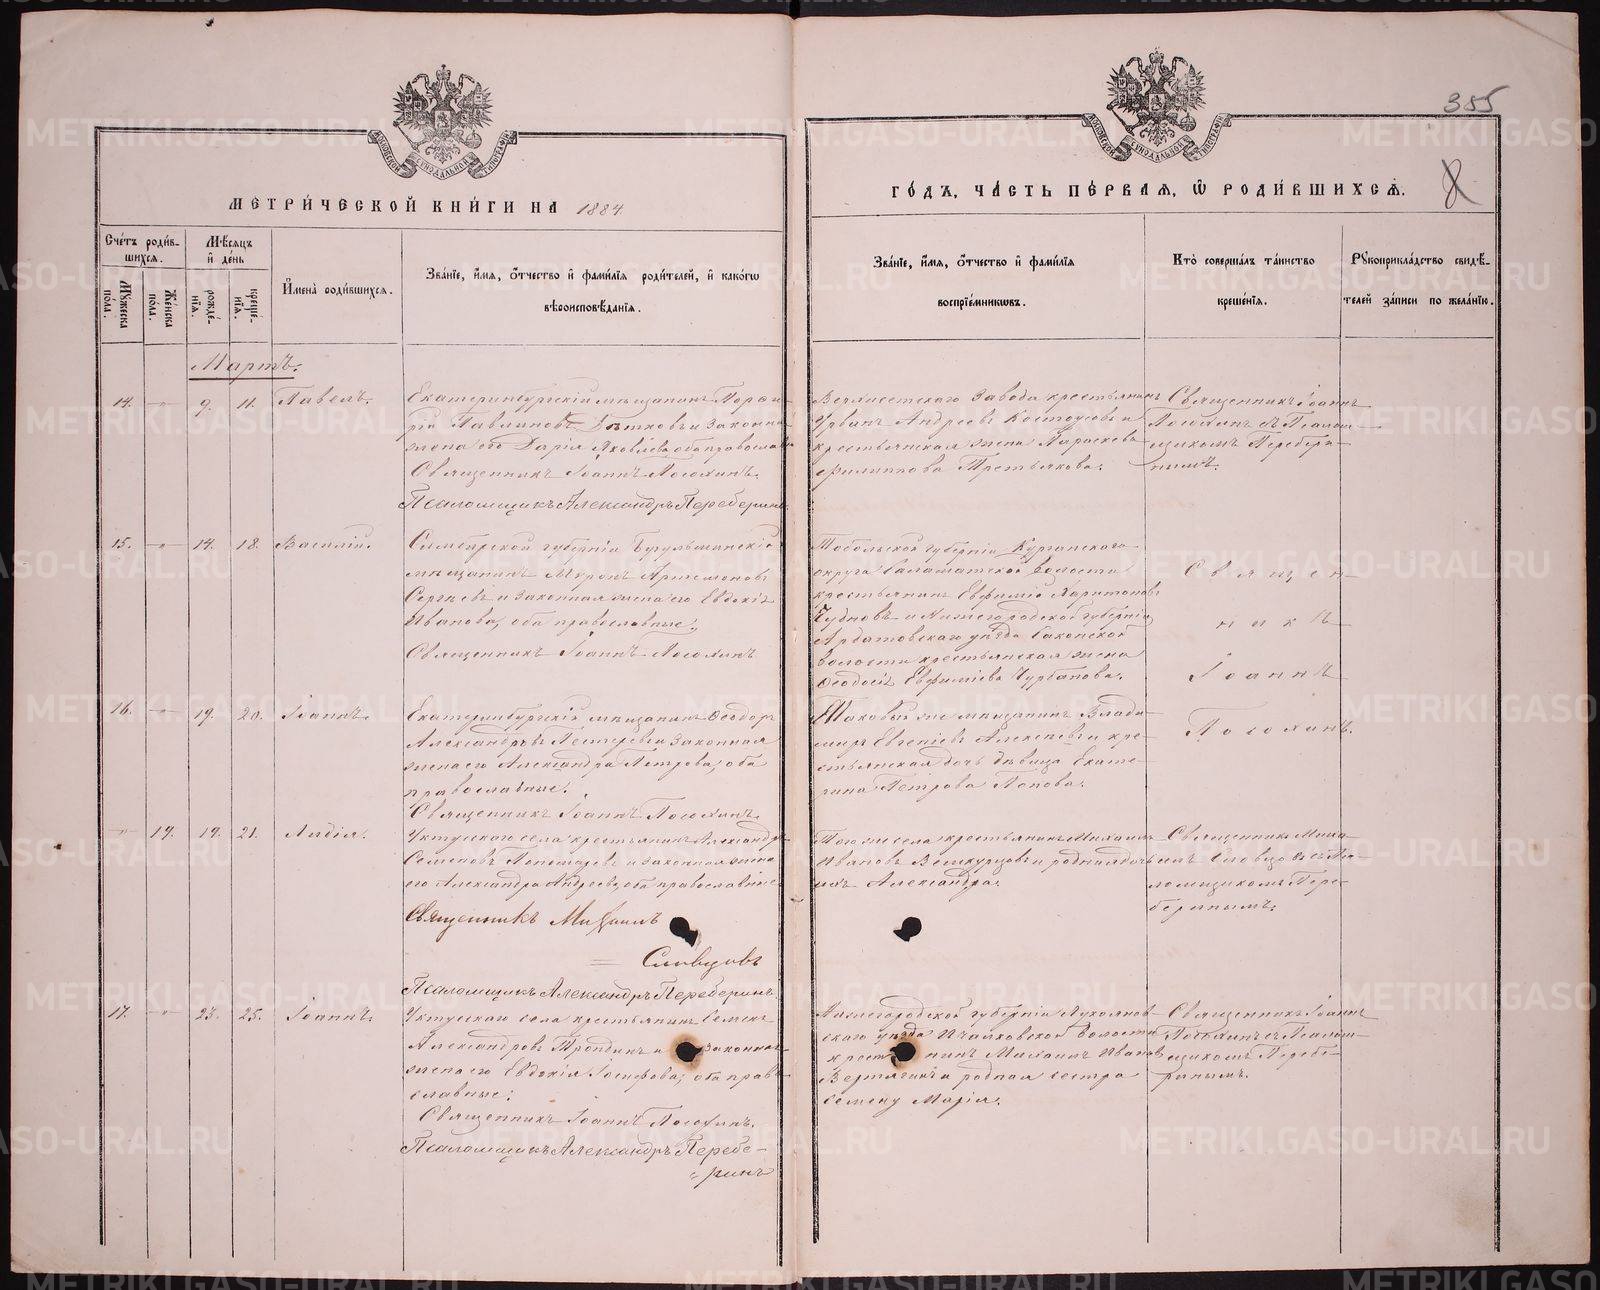 385
8
МЕТРИЧЕСКОЙ КНИГИ НА 1884
ГОДЪ, ЧАСТЬ ПЕРВАЯ, Ѡ РОДИВШИХСЯ.
Счетъ родив-
шихся.
Мужеска пола.
Женска пола.
Мѣсяцъ и день
рожденія.
крещенія.
Имена родившихся.
Званіе, имя, отчество и фамилія родителей, и какогѡ
вѣроисповѣданія.
Званіе, имя, отчество и фамилія
воспріемникѡвъ.
Кто совершалъ таинство
крещенія.
Рукоприкладство свидѣ-
телей записи по желанію.
Мартъ.
14. 9. 11. Павелъ.
Екатеринбургскій мѣщанинъ Порфи-
рій Павлиновъ и законная
жена его Дарія Яковлева, оба православные
Священникъ Іоаннъ Посохинъ.
Псаломщикъ Александръ Переберинъ
Верхисетскаго Завода крестьянинъ
Урванъ Андреевъ и
крестьянская жена Параскева
Филиппова Третьякова.
Священникъ Іоаннъ
Посохинъ съ Псалом-
щикомъ Перебери-
нымъ.
15. 14. 18. Василій.
Симбирской губерніи
мѣщанинъ Миронъ Артемоновъ
Сергѣевъ и законная жена его Евдокія
Иванова, оба православные.
Священникъ Іоаннъ Посохинъ
Тобольской губерніи Курганскаго
округа волости
крестьянинъ Евфимій Харитоновъ
Чудновъ и Нижегородской губерніи
Ардатовскаго уѣзда
волости крестьянская жена
Феодосія Евфиміева Чурбанова.
Священ-
никъ
Іоаннъ
Посохинъ.
16. 19. 20. Іоаннъ.
Екатеринбургскій мѣщанинъ Феодоръ
Александровъ Пестеревъ и законная
жена его Александра Петрова, оба
православные.
Священникъ Іоаннъ Посохинъ.
Таковый же мѣщанинъ Влади-
миръ Евгеніевъ Алексѣевъ и кре-
стьянская дочь дѣвица Екате-
рина Петрова Попова.
14. 19. 21. Лидія.
Уктусскаго села крестьянинъ Александръ
Семеновъ и законная жена
его Александра Андреева, оба православные
Священникъ Михаилъ
Словцовъ
Псаломщикъ Александръ Переберинъ.
Того же села крестьянинъ Михаилъ
Ивановъ и родная дочь
ихъ Александра.
Священникъ Миха-
илъ Словцовъ съ Пса-
ломщикомъ Пере-
беринымъ.
17. 23. 25. Іоаннъ.
Уктусскаго села крестьянинъ Семенъ
Александровъ Трондинъ и законная
жена его Евдокія Іосифова, оба право-
славные.
Священникъ Іоаннъ Посохинъ.
Псаломщикъ Александръ Перебе-
ринъ
Нижегородской губерніи Лукоянов-
скаго уѣзда Ичалковской волости
крестьянинъ Михаилъ Ивановъ
и родная сестра
Семену Марія.
Священникъ Іоаннъ
Посохинъ съ Псалом-
щикомъ Перебе-
ринымъ.